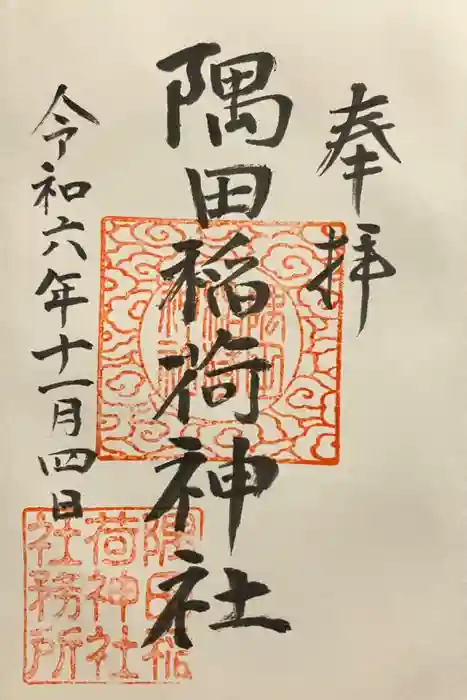 奉拝
隅田稲荷神社
令和六年十一月四日
隅田稲
荷神社
社務所